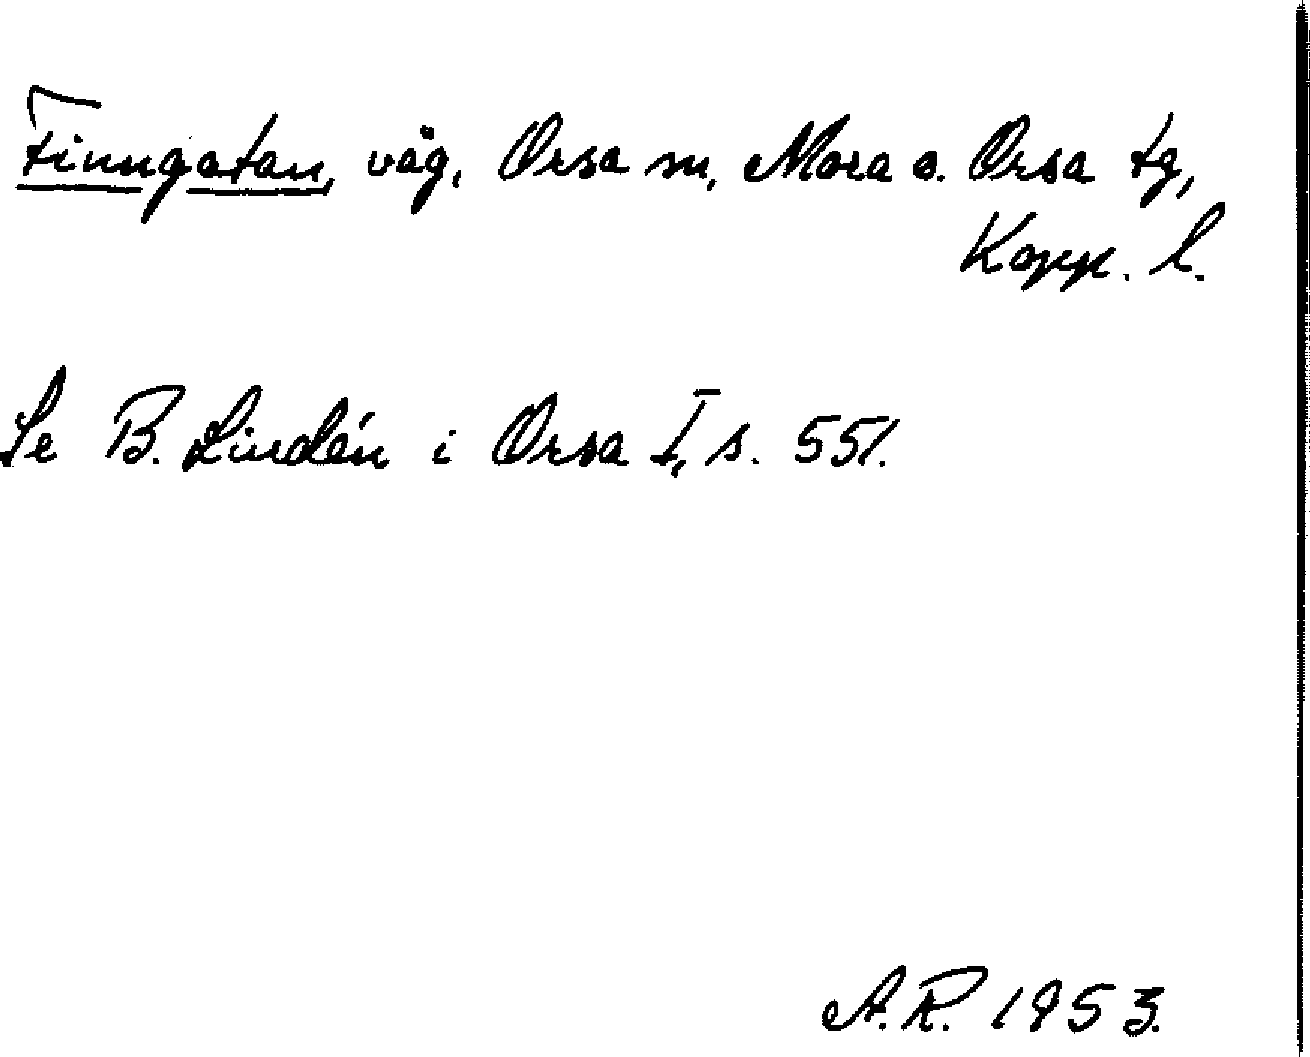 Finngatan, väg, Orsa sn, Mora o. Orsa tg,
Kopp. l.
Se B. Lindén i Orsa I, s. 551.
A.R. 1953.